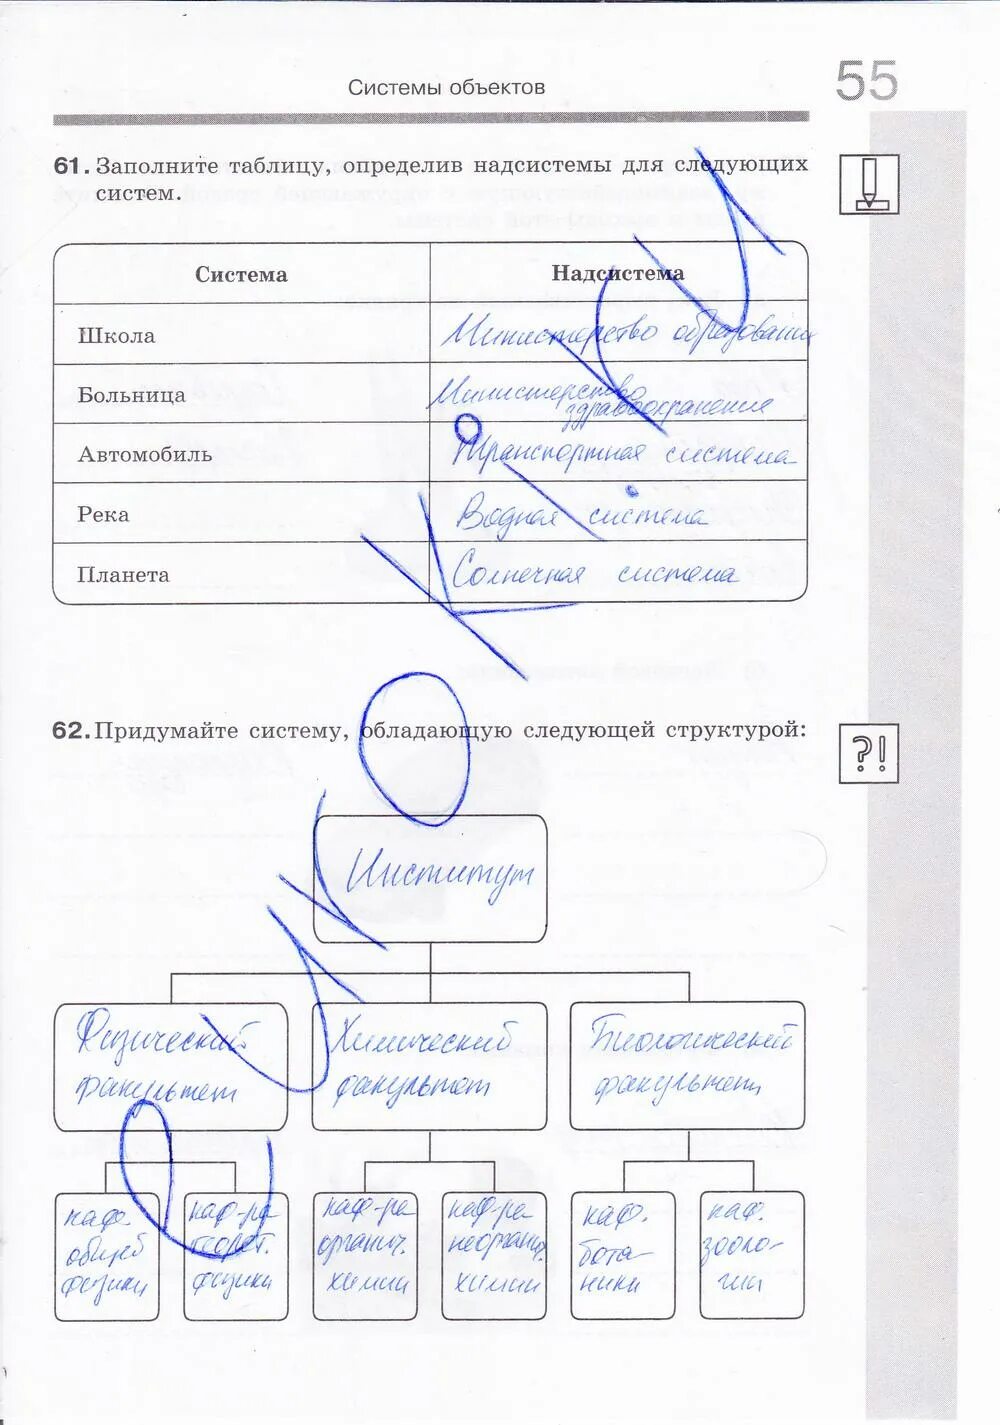 Системы объектов
55
61. Заполните таблицу, определив надсистемы для следующих
систем.
Система
Надсистема
Школа
Министерство образования
Больница
Министерство
здравоохранения
Автомобиль
Транспортная система
Река
Водная система
Планета
Солнечная система
62. Придумайте систему, обладающую следующей структурой:
?!
Институт
Физический
факультет
Химический
факультет
Биологический
факультет
каф.
общей
физики
каф-ра
теорет.
физики
каф-ра
органич.
химии
каф-ра
неорганич.
химии
каф.
бота-
ники
каф.
зооло-
гии